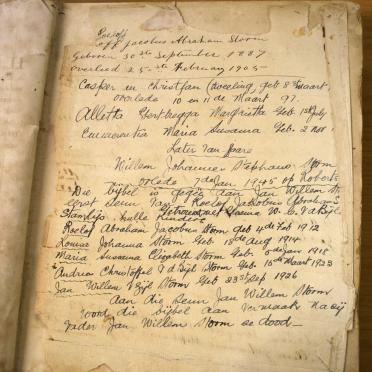 Roelof
off Jacobus Abraham Storm
Geboren 30ste September 1887
overleed 25-ste February 1905-
Casper en Christjan (tweeling, geb 8ste maart
overlede 10 en 11 de Maart 97.
Alletta Gertbregga Margrieta Geb. 1st July
Susanna Geb. 2 nov
Later van Jare
Willem Johannes Stephanus Storm
overlede 7de Jan 1945 op Roberts
Die bijbel is gegee aan Jan Willem St
eerst Seun van Roelof Jackobus Abraham S
Getroud met W. C. V d Bijl
hulle kinders
Roelof Abraham Jacobus Storm geb 4de Feb 1912
Louisa Johanna Storm Geb 18de Aug 1914
Maria Susanna Elizabeth Storm Geb 5de Jan 191
Andries Christoffel V d Bijl Storm Geb 15de Maart 1923
Jan Willem V Bijl Storm Geb 23ste Sep 1926
Aan die Seun Jan Willem Storm
word die bijbel aan vermaak na sij
vader Jan Willem Storm se dood_